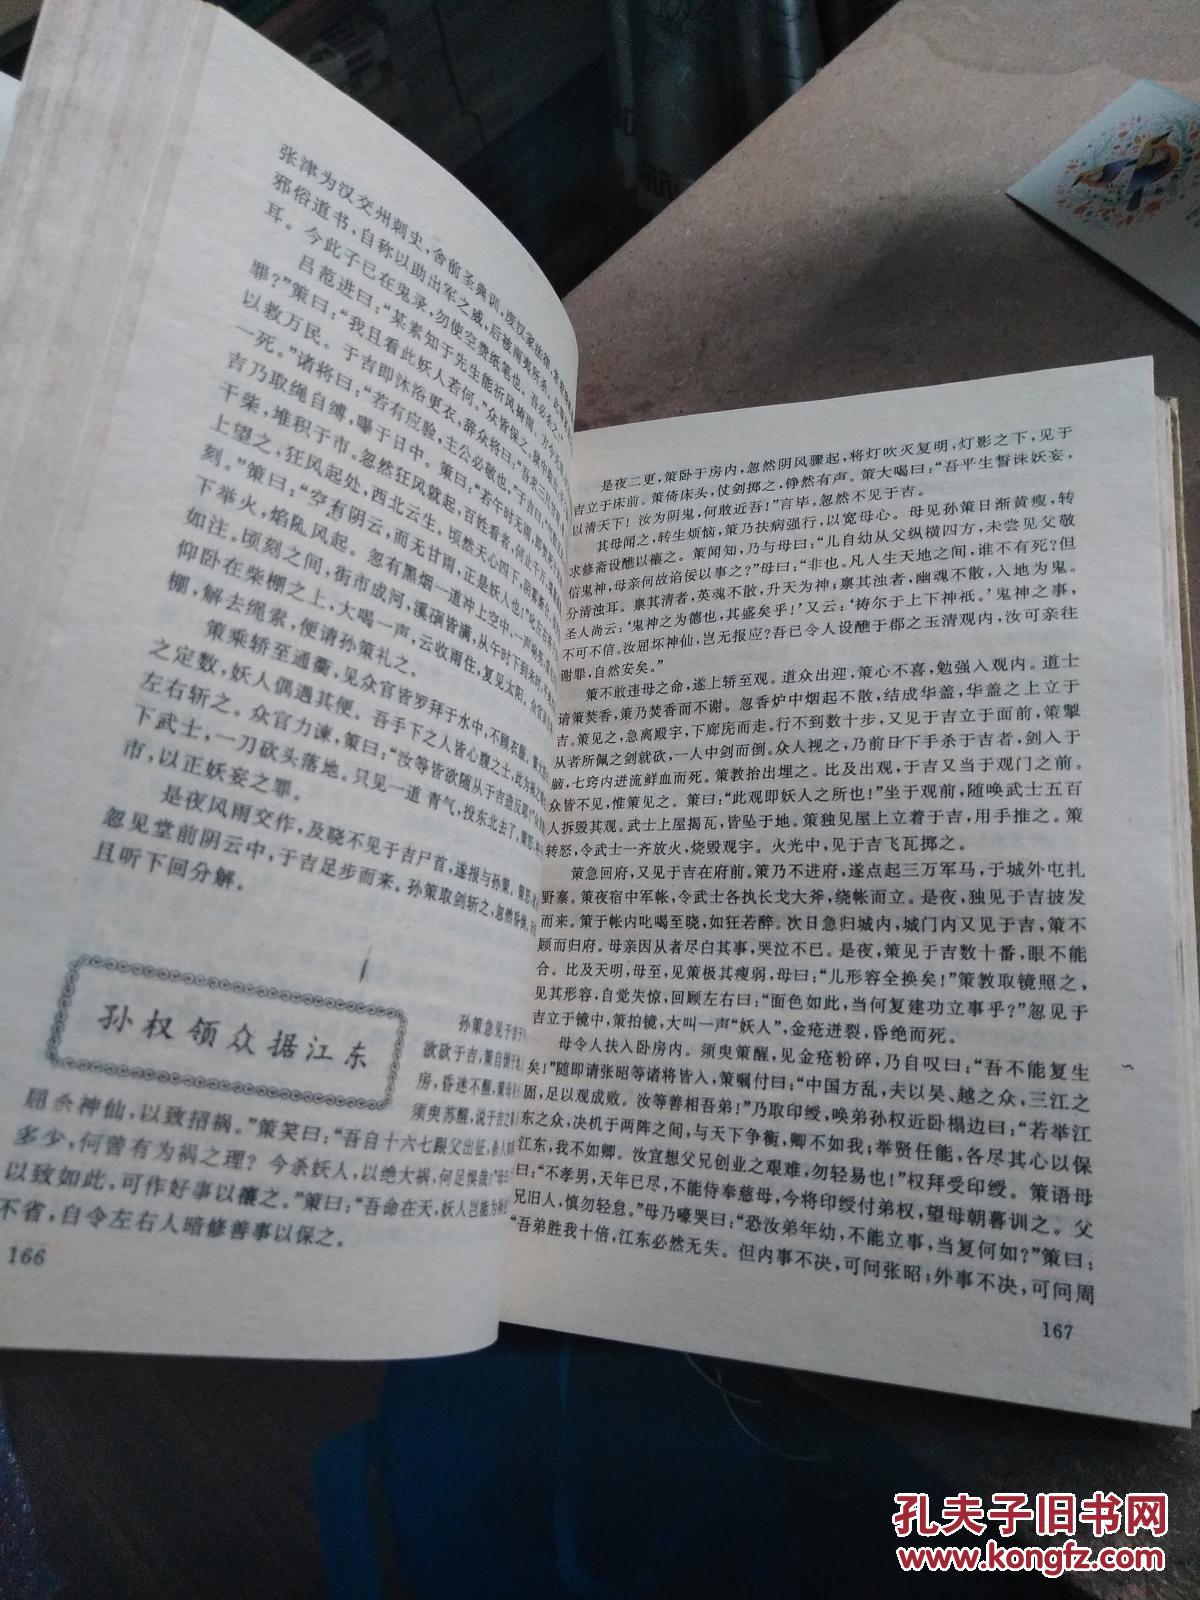 张津为汉交州刺史，舍前圣典训，废汉家法律，
邪俗道书，自称以助出军之威，后被南夷所杀。
耳。今此子已在鬼录，勿使空费纸笔也。吾必杀之！”
吕范进曰：“某素知于先生能祈风祷雨，方今天
罪？”策曰：“我且看此妖人若何。”众皆保之，
以救万民。于吉即沐浴更衣，辞众将曰：“吾求三尺甘
一死。”诸将曰：“若有应验，主公必敬也。”于吉曰：
吉乃取绳自缚，曝于日中。策曰：“若午时无雨，即焚死
干柴，堆积于市。忽然狂风就起，百姓看者，何止千万
上望之，狂风起处，西北云生。顷然天心四下，阴雾
刻。”策曰：“空有阴云，而无甘雨，正是妖人也！”叱左右将
下举火，焰随风起。忽有黑烟一道冲上空中，一声响亮
如注。顷刻之间，街市成河，溪涧皆满，从午时下到未时
仰卧在柴棚之上，大喝一声，云收雨住，复见太阳。众官
棚，解去绳索，便请孙策礼之。
策乘轿至通衢，见众官皆罗拜于水中，不顾衣服，策大
之定数，妖人偶遇其便。吾手下之人皆心腹之士，此为
左右斩之。众官力谏，策曰：“汝等皆欲随从于吉造反耶？”众
下武士，一刀砍头落地。只见一道青气，投东北去了。策
市，以正妖妄之罪。
是夜风雨交作，及晓不见于吉尸首，遂报与孙策。策
忽见堂前阴云中，于吉足步而来。孙策取剑斩之，忽然昏倒。
且听下回分解。
孙权领众据江东
孙策急见于吉
欲砍于吉，策自倒于
房，昏迷不醒。策母
须臾苏醒，说于吉之
屈杀神仙，以致招祸。”策笑曰：“吾自十六七跟父出征，杀人
多少，何曾有为祸之理？今杀妖人，以绝大祸，何足惧哉！”母曰
以致如此，可作好事以禳之。”策曰：“吾命在天，妖人岂能为
不省，自令左右人暗修善事以保之。
166
是夜二更，策卧于房内，忽然阴风骤起，将灯吹灭复明，灯影之下，见于
吉立于床前。策倚床头，仗剑掷之，铮然有声。策大喝曰：“吾平生誓诛妖妄，
以清天下！汝为阴鬼，何敢近吾！”言毕，忽然不见于吉。
其母闻之，转生烦恼，策乃扶病强行，以宽母心。母见孙策日渐黄瘦，转
求修斋设醮以禳之。策闻知，乃与母曰：“儿自幼从父纵横四方，未尝见父敬
信鬼神，母亲何故谄佞以事之？”母曰：“非也。凡人生天地之间，谁不有死？但
分清浊耳。禀其清者，英魂不散，升天为神；禀其浊者，幽魂不散，入地为鬼。
圣人尚云：‘鬼神之为德也，其盛矣乎！’又云：‘祷尔于上下神祇。’鬼神之事，
不可不信。汝屈坏神仙，岂无报应？吾已令人设醮于郡之玉清观内，汝可亲往
谢罪，自然安矣。”
策不敢违母之命，遂上轿至观。道众出迎，策心不喜，勉强入观内。道士
请策焚香，策乃焚香而不谢。忽香炉中烟起不散，结成华盖，华盖之上立于
吉。策见之，急离殿宇，下廊庑而走。行不到数十步，又见于吉立于面前，策掣
从者所佩之剑就砍，一人中剑而倒。众人视之，乃前日下手杀于吉者，剑入于
脑，七窍内迸流鲜血而死。策教抬出埋之。比及出观，于吉又当于观门之前。
众皆不见，惟策见之。策曰：“此观即妖人之所也！”坐于观前，随唤武士五百
人拆毁其观。武士上屋揭瓦，皆坠于地。策独见屋上立着于吉，用手推之。策
转怒，令武士一齐放火，烧毁观宇。火光中，见于吉飞瓦掷之。
策急回府，又见于吉在府前。策乃不进府，遂点起三万军马，于城外屯扎
野寨。策夜宿中军帐，令武士各执长戈大斧，绕帐而立。是夜，独见于吉披发
而来。策于帐内叱喝至晓，如狂若醉。次日急归城内，城门内又见于吉，策不
顾而归府。母亲因从者尽白其事，哭泣不已。是夜，策见于吉数十番，眼不能
合。比及天明，母至，见策极其瘦弱，母曰：“儿形容全换矣！”策教取镜照之，
见其形容，自觉失惊，回顾左右曰：“面色如此，当何复建功立事乎？”忽见于
吉立于镜中，策拍镜，大叫一声“妖人”，金疮迸裂，昏绝而死。
母令人扶入卧房内。须臾策醒，见金疮粉碎，乃自叹曰：“吾不能复生
矣！”随即请张昭等诸将皆入，策嘱付曰：“中国方乱，夫以吴、越之众，三江之
固，足以观成败。汝等善相吾弟！”乃取印绶，唤弟孙权近卧榻边曰：“若举江
东之众，决机于两阵之间，与天下争衡，卿不如我；举贤任能，各尽其心以保
江东，我不如卿。汝宜想父兄创业之艰难，勿轻易也！”权拜受印绶。策语母
曰：“不孝男，天年已尽，不能侍奉慈母，今将印绶付弟权，望母朝暮训之。父
兄旧人，慎勿轻怠。”母乃嚎哭曰：“恐汝弟年幼，不能立事，当复何如？”策曰：
“吾弟胜我十倍，江东必然无失。但内事不决，可问张昭；外事不决，可问周
167
孔夫子旧书网
www.kongfz.com